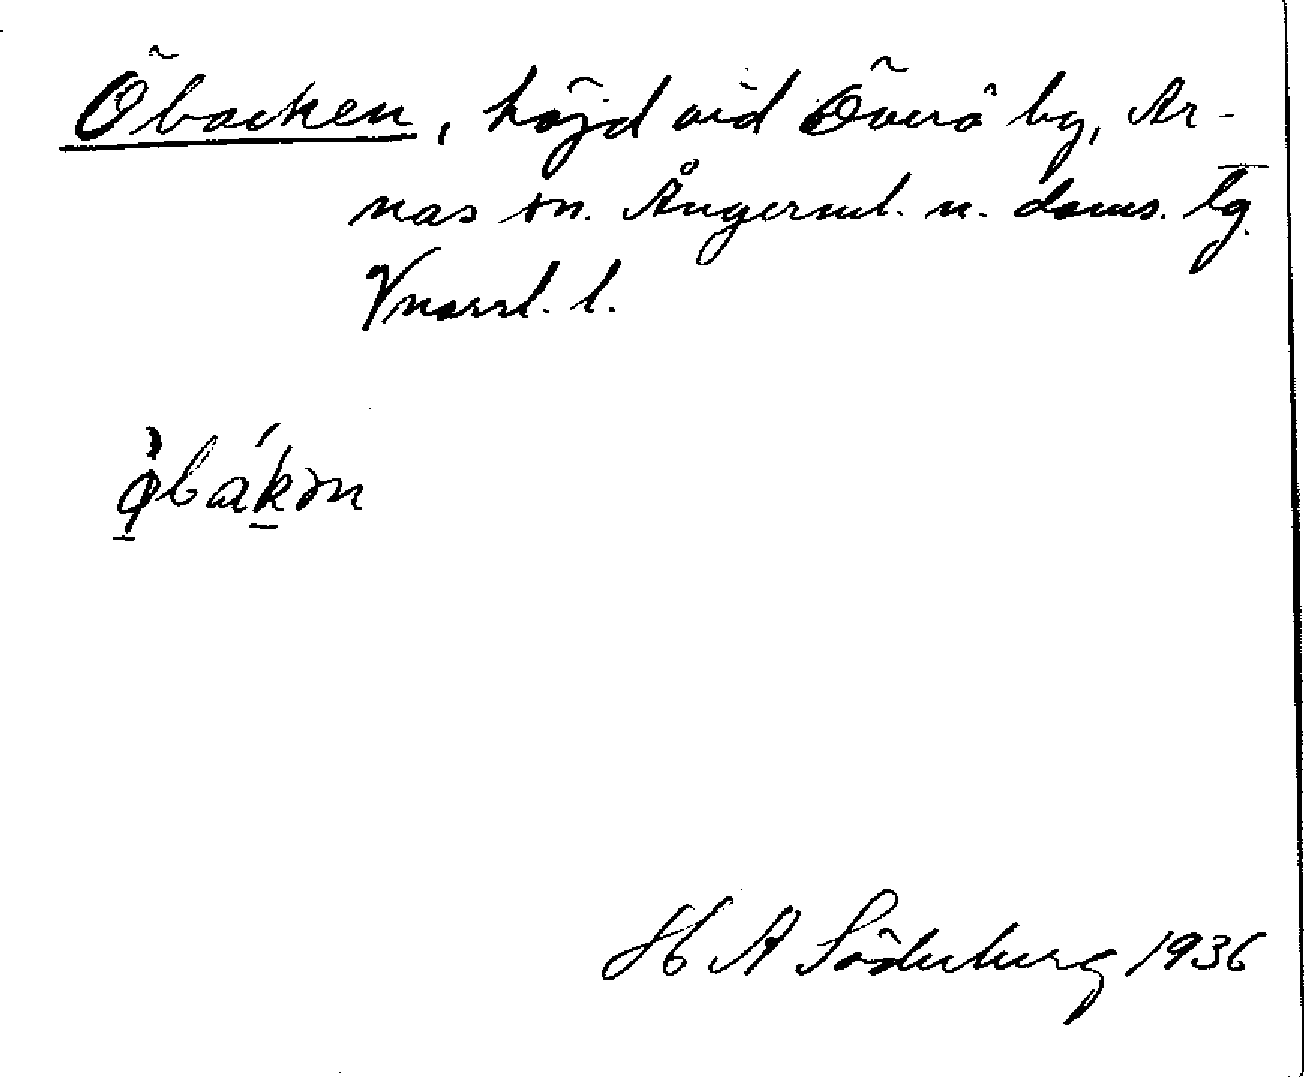 Öbacken, höjd vid Överå by, Ar-
näs sn. Ångerml. n. doms. lg.
Vnorrl. l.
ǫ̀bákən
H A Söderberg 1936